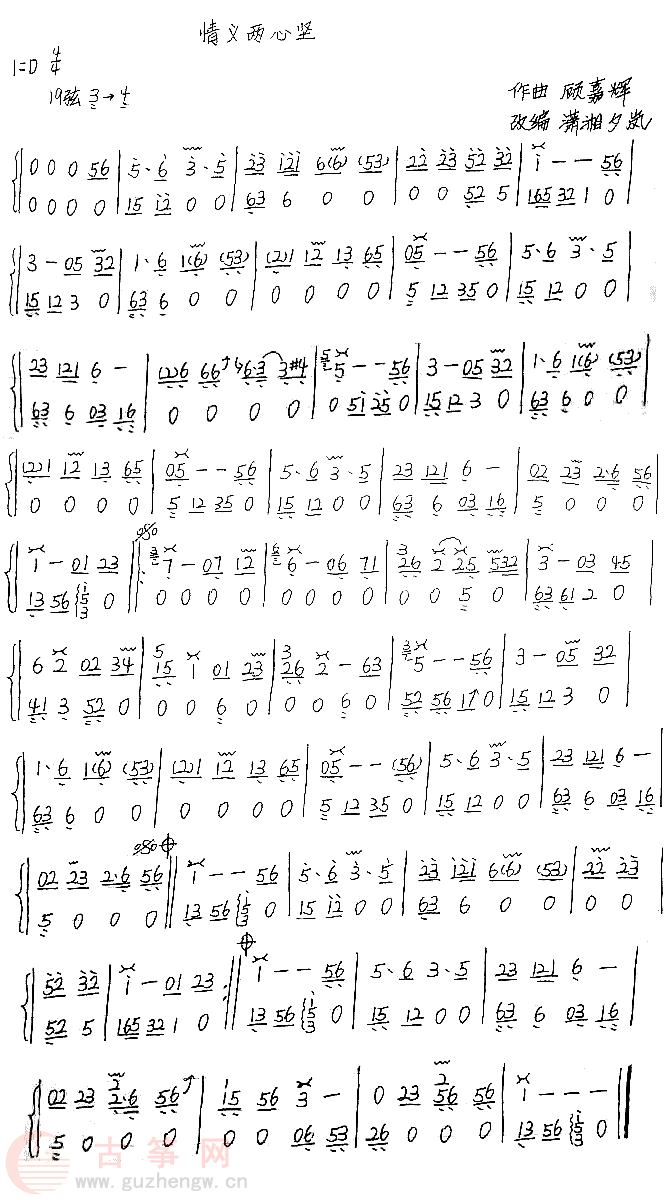 情义两心坚
1=D 4/4
19弦 3→4
作曲 顾嘉辉
改编 潇湘夕岚
0 0 0 56 | 5·6 3·5 | 23 121 6(6) (53) | 22 23 52 32 | 1 - - 56
0 0 0 0 | 15 12 0 0 | 63 6 0 0 | 0 0 52 5 | 165 32 1 0
3 - 05 32 | 1·6 1(6) (53) | (12)1 12 13 65 | 05 - - 56 | 5·6 3·5
15 12 3 0 | 63 6 0 0 | 0 0 0 0 | 5 12 35 0 | 15 12 0 0
23 121 6 - | (2)6 66↗ 6·3 3#4 | 5 - - 56 | 3 - 05 32 | 1·6 1(6) (53)
63 6 03 16 | 0 0 0 0 | 0 51 25 0 | 15 12 3 0 | 63 6 0 0
(12)1 12 13 65 | 05 - - 56 | 5·6 3·5 | 23 121 6 - | 02 23 2·6 56
0 0 0 0 | 5 12 35 0 | 15 12 0 0 | 63 6 03 16 | 5 0 0 0
1 - 01 23 ‖: 7 - 07 12 | 6 - 06 71 | 26 2 25 532 | 3 - 03 45
13 56 153 0 ‖: 0 0 0 0 | 0 0 0 0 | 0 0 5 0 | 63 61 2 0
6 2 02 34 | 15 1 01 23 | 26 2 - 63 | 5 - - 56 | 3 - 05 32
41 3 52 0 | 0 0 6 0 | 0 0 6 0 | 52 56 17↗ 0 | 15 12 3 0
1·6 1(6) (53) | (12)1 12 13 65 | 05 - - (56) | 5·6 3·5 | 23 121 6 -
63 6 0 0 | 0 0 0 0 | 5 12 35 0 | 15 12 0 0 | 63 6 03 16
02 23 2·6 56 ‖ 1 - - 56 | 5·6 3·5 | 23 121 6(6) (53) | 22 23
5 0 0 0 ‖ 13 56 153 0 | 15 12 0 0 | 63 6 0 0 | 0 0
52 32 | 1 - 01 23 :‖ 1 - - 56 | 5·6 3·5 | 23 121 6 -
52 5 | 165 32 1 0 :‖ 13 56 153 0 | 15 12 0 0 | 63 6 03 16
02 23 2·6 56↗ | 15 56 3 - | 0 23 56 56 | 1 - - - ‖
5 0 0 0 | 0 0 06 53 | 26 0 0 0 | 13 56 153 0 ‖
古筝网
www.guzhengw.cn